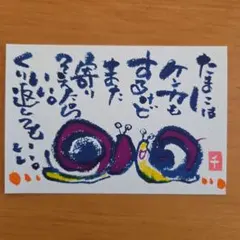 たまには
ケンカも
するけど
また
寄り
そえたら
いい。
くり返してもいい。
千